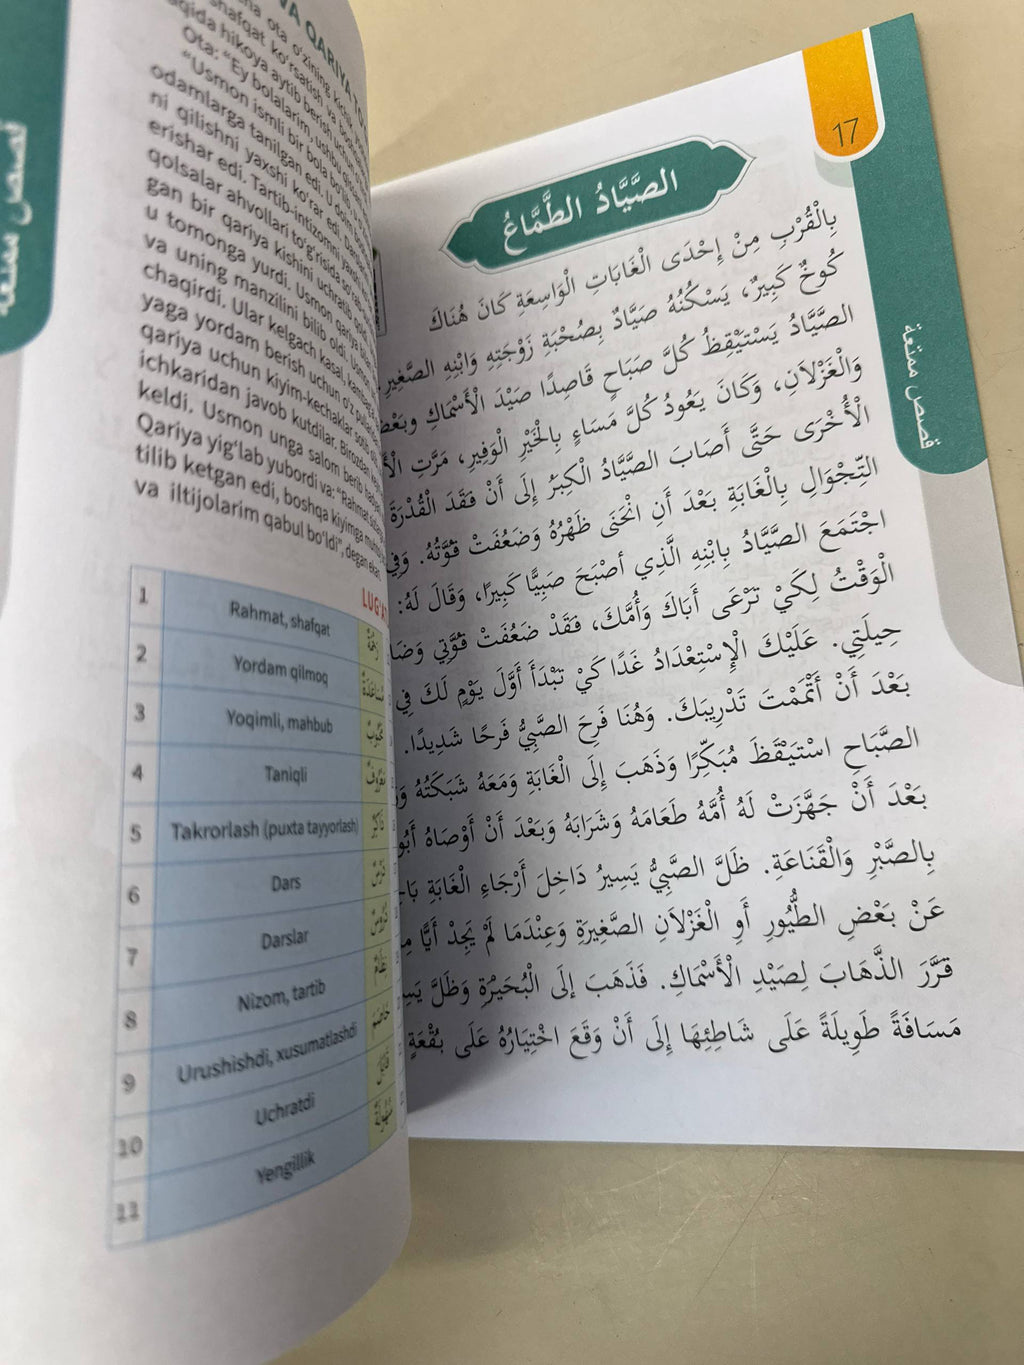 قصص ممتعة
VA QARIYA
ota o‘zining kichik
shafqat ko‘rsatish va
haqida hikoya aytib berish uchun
Ota: “Ey bolalarim, ushbu
“Usmon ismli bir bola bo‘lib, u
odamlarga tanilgan edi. U doim
ni qilishni yaxshi ko‘rar edi.
erishar edi. Tartib-intizomni yaxshi
qolsalar ahvollari to‘g‘risida so‘rar
gan bir qariya kishini uchratib
u tomonga yurdi. Usmon qariya bilan
va uning manzilini bilib oldi. Usmon
chaqirdi. Ular kelgach kasal, kambag‘al
yaga yordam berish uchun o‘z pullarini
qariya uchun kiyim-kechaklar sotib
ichkaridan javob kutdilar. Birozdan keyin
keldi. Usmon unga salom berib
Qariya yig‘lab yubordi va: “Rahmat sizlarga
tilib ketgan edi, boshqa kiyimga
va iltijolarim qabul bo‘ldi”, degan ekan
LUG‘AT
1 Rahmat, shafqat
2 Yordam qilmoq مُسَاعَدَةٌ
3 Yoqimli, mahbub
4 Taniqli مَعْرُوفٌ
5 Takrorlash (puxta tayyorlash)
6 Dars دَرْسٌ
7 Darslar دُرُوسٌ
8 Nizom, tartib نِظَامٌ
9 Urushishdi, xusumatlashdi خَاصَمَ
10 Uchratdi قَابَلَ
11 Yengillik سُهُولَةٌ
17
الصَّيَّادُ الطَّمَّاعُ
بِالْقُرْبِ مِنْ إِحْدَى الْغَابَاتِ الْوَاسِعَةِ كَانَ هُنَاكَ
كُوخٌ كَبِيرٌ، يَسْكُنُهُ صَيَّادٌ بِصُحْبَةِ زَوْجَتِهِ وَابْنِهِ الصَّغِيرِ.
الصَّيَّادُ يَسْتَيْقِظُ كُلَّ صَبَاحٍ قَاصِدًا صَيْدَ الْأَسْمَاكِ وَبَعْضِ
وَالْغَزْلَانِ، وَكَانَ يَعُودُ كُلَّ مَسَاءٍ بِالْخَيْرِ الْوَفِيرِ، مَرَّتِ
الْأُخْرَى حَتَّى أَصَابَ الصَّيَّادُ الْكِبَرُ إِلَى أَنْ فَقَدَ الْقُدْرَةَ
التِّجْوَالِ بِالْغَابَةِ بَعْدَ أَنِ انْحَنَى ظَهْرُهُ وَضَعُفَتْ قُوَّتُهُ. وَفِي
اجْتَمَعَ الصَّيَّادُ بِابْنِهِ الَّذِي أَصْبَحَ صَبِيًّا كَبِيرًا، وَقَالَ لَهُ:
الْوَقْتُ لِكَيْ تَرْعَى أَبَاكَ وَأُمَّكَ، فَقَدْ ضَعُفَتْ قُوَّتِي
حِيلَتِي. عَلَيْكَ الْإِسْتِعْدَادُ غَدًا كَيْ تَبْدَأَ أَوَّلَ يَوْمٍ لَكَ فِي
بَعْدَ أَنْ أَتْمَمْتَ تَدْرِيبَكَ. وَهُنَا فَرِحَ الصَّبِيُّ فَرَحًا شَدِيدًا.
الصَّبَاحِ اسْتَيْقَظَ مُبَكِّرًا وَذَهَبَ إِلَى الْغَابَةِ وَمَعَهُ شَبَكَتُهُ
بَعْدَ أَنْ جَهَّزَتْ لَهُ أُمُّهُ طَعَامَهُ وَشَرَابَهُ وَبَعْدَ أَنْ أَوْصَاهُ
بِالصَّبْرِ وَالْقَنَاعَةِ. ظَلَّ الصَّبِيُّ يَسِيرُ دَاخِلَ أَرْجَاءِ الْغَابَةِ
عَنْ بَعْضِ الطُّيُورِ أَوِ الْغَزْلَانِ الصَّغِيرَةِ وَعِنْدَمَا لَمْ يَجِدْ أَيًّا
قَرَّرَ الذَّهَابَ لِصَيْدِ الْأَسْمَاكِ. فَذَهَبَ إِلَى الْبُحَيْرَةِ وَظَلَّ
مَسَافَةً طَوِيلَةً عَلَى شَاطِئِهَا إِلَى أَنْ وَقَعَ اخْتِيَارُهُ عَلَى بُقْعَةٍ
قصص ممتعة